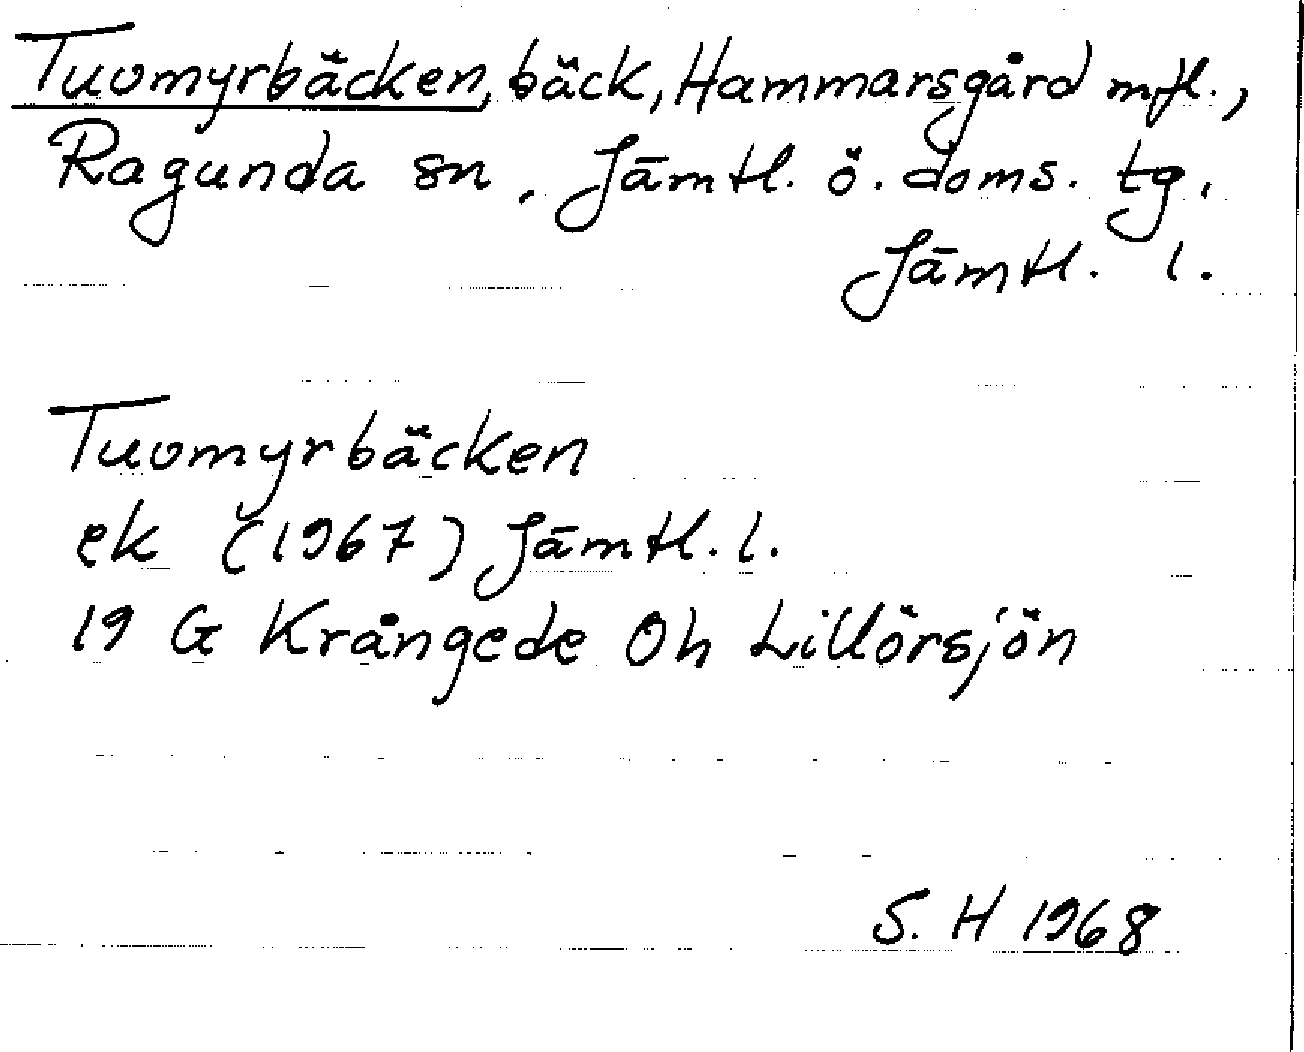 Tuvmyrbäcken, bäck, Hammarsgård mfl.,
Ragunda sn, Jämtl. ö. doms. tg.
Jämtl. l.
Tuvmyrbäcken
ek (1967) Jämtl. l.
19 G Krångede Oh Lillörsjön
S. H 1968